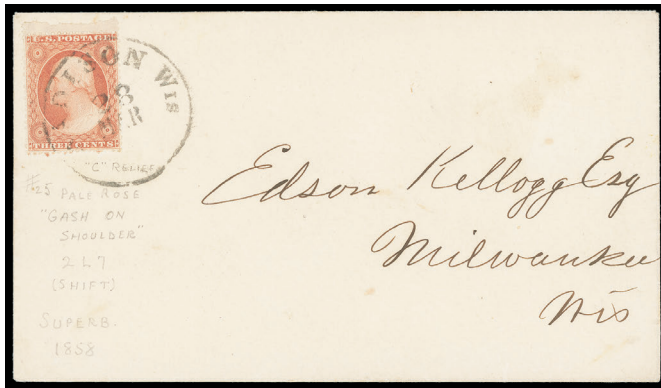 U.S. POSTAGE
THREE CENTS
DISON WIS
28
MAR
"C" RELIEF
#25 PALE ROSE
"GASH ON
SHOULDER"
2L7
(SHIFT)
SUPERB.
1858
Edson Kellogg Esq
Milwaukee
Wis